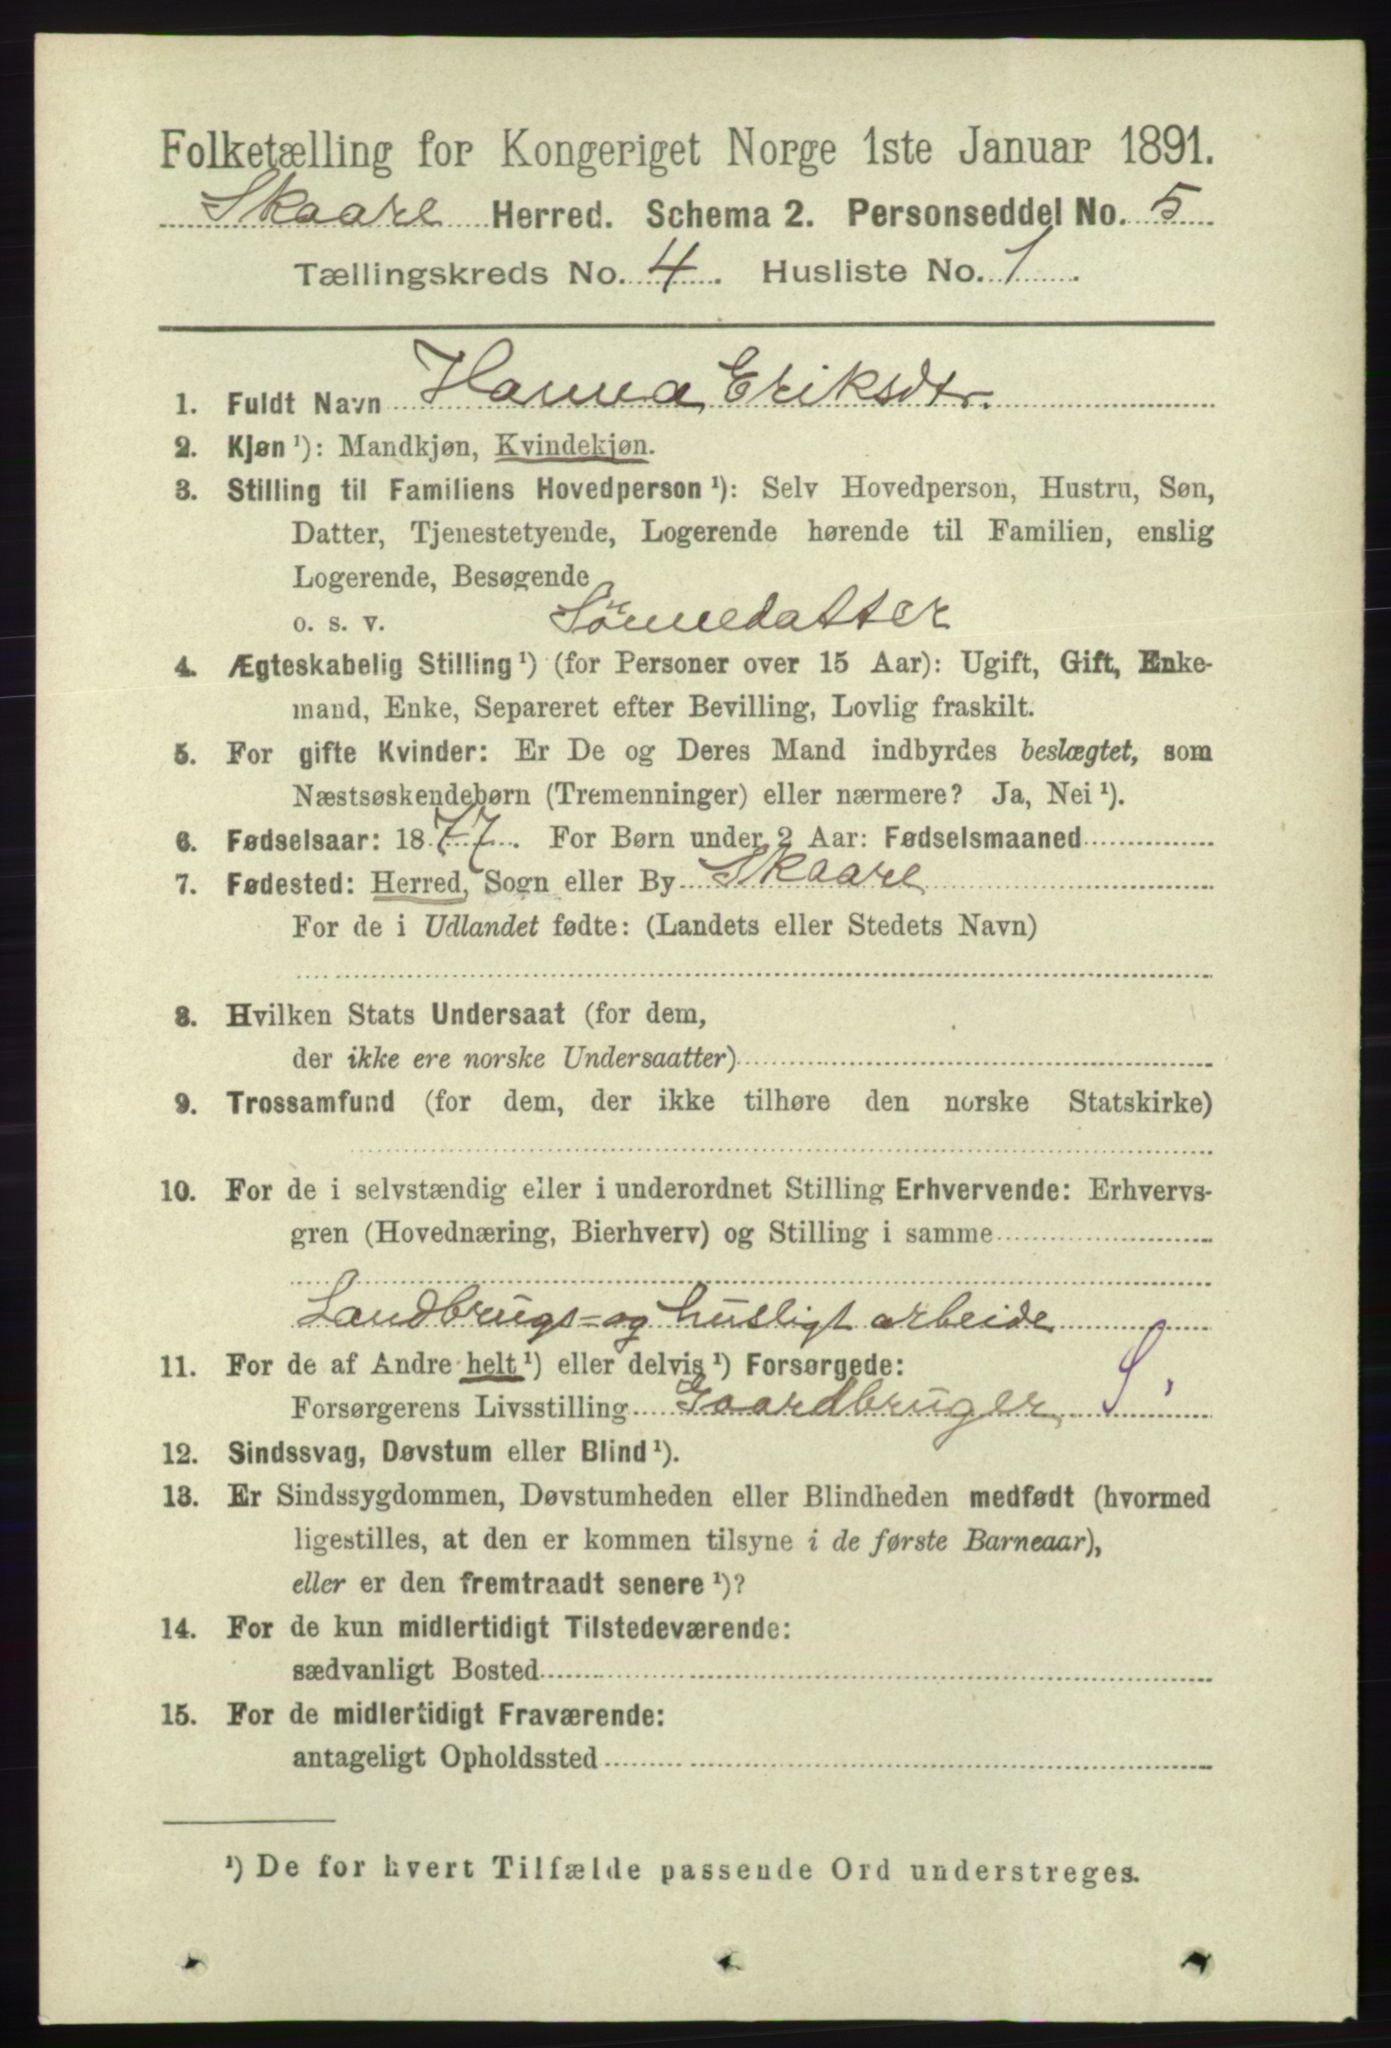 Folketælling for Kongeriget Norge 1ste Januar 1891.
Skaare Herred. Schema 2. Personseddel No. 5
Tællingskreds No. 4. Husliste No. 1.
1. Fuldt Navn Hanna Eriksdtr.
2. Kjøn ¹): Mandkjøn, Kvindekjøn.
3. Stilling til Familiens Hovedperson ¹): Selv Hovedperson, Hustru, Søn,
Datter, Tjenestetyende, Logerende hørende til Familien, enslig
Logerende, Besøgende
o. s. v. Sønnedatter
4. Ægteskabelig Stilling ¹) (for Personer over 15 Aar): Ugift, Gift, Enke-
mand, Enke, Separeret efter Bevilling, Lovlig fraskilt.
5. For gifte Kvinder: Er De og Deres Mand indbyrdes beslægtet, som
Næstsøskendebørn (Tremenninger) eller nærmere? Ja, Nei ¹).
6. Fødselsaar: 1877. For Børn under 2 Aar: Fødselsmaaned
7. Fødested: Herred, Sogn eller By Skaare
For de i Udlandet fødte: (Landets eller Stedets Navn)
8. Hvilken Stats Undersaat (for dem,
der ikke ere norske Undersaatter)
9. Trossamfund (for dem, der ikke tilhøre den norske Statskirke)
10. For de i selvstændig eller i underordnet Stilling Erhvervende: Erhvervs-
gren (Hovednæring, Bierhverv) og Stilling i samme
Landbrugs- og husligt arbeide
11. For de af Andre helt ¹) eller delvis ¹) Forsørgede:
Forsørgerens Livsstilling Gaardbruger S,
12. Sindssvag, Døvstum eller Blind ¹).
13. Er Sindssygdommen, Døvstumheden eller Blindheden medfødt (hvormed
ligestilles, at den er kommen tilsyne i de første Barneaar),
eller er den fremtraadt senere ¹)?
14. For de kun midlertidigt Tilstedeværende:
sædvanligt Bosted
15. For de midlertidigt Fraværende:
antageligt Opholdssted
¹) De for hvert Tilfælde passende Ord understreges.